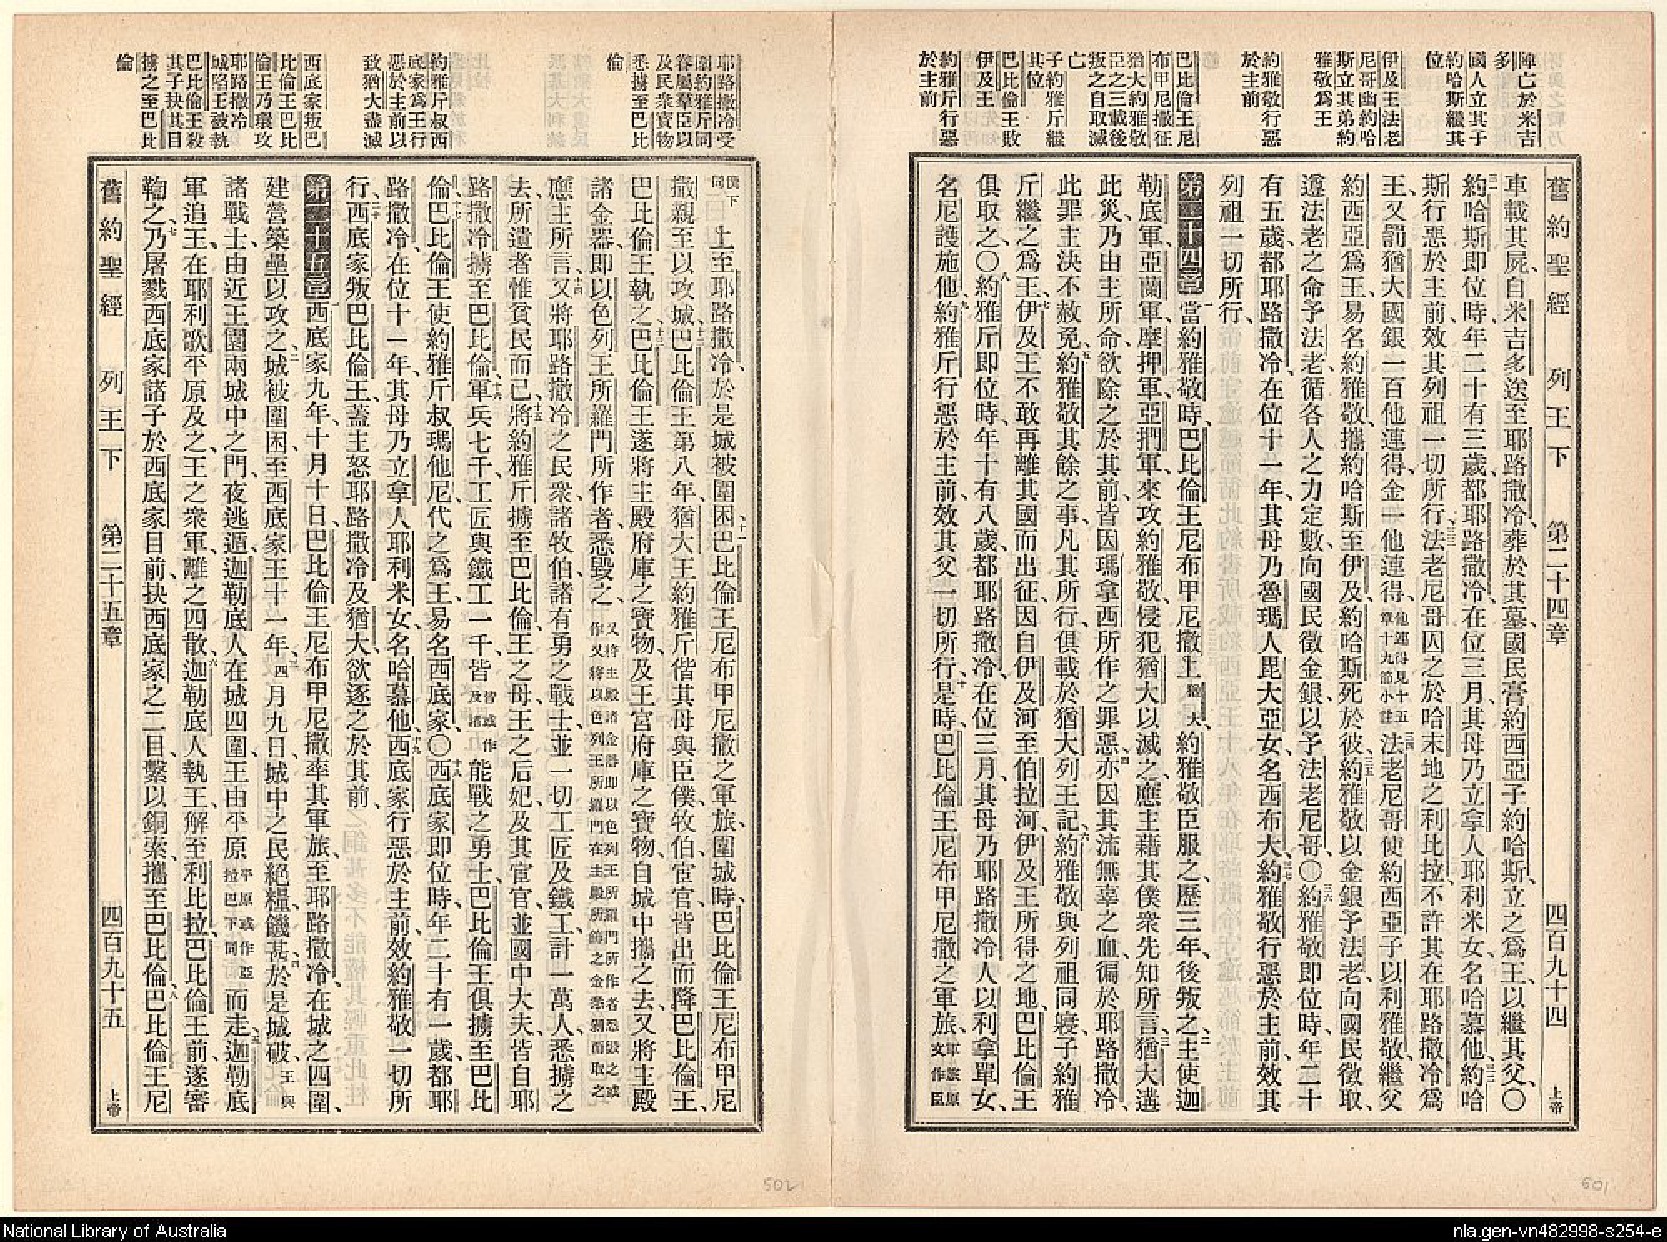 陣亡於米吉
多
國人立其子
約哈斯繼其
位
伊及王法老
尼哥幽約哈
斯立其弟約
雅敬爲王
約雅敬行惡
於主前
巴比倫王尼
布甲尼撒征
猶大約雅敬
臣之三載後
叛之自取滅
亡
子約雅斤繼
其位
巴比倫王敗
伊及王
約雅斤行惡
於主前
舊約聖經 列王下 第二十四章 四百九十四 上帝
車載其屍、自米吉多送至耶路撒冷、葬於其墓、國民膏約西亞子約哈斯、立之爲王、以繼其父、〇
約哈斯即位時、年二十有三歲、都耶路撒冷、在位三月、其母乃立拿人耶利米女、名哈慕他、約哈
斯行惡於主前、效其列祖一切所行、法老尼哥囚之於哈末地之利比拉、不許其在耶路撒冷爲
王、又罰猶大國銀一百他連得、金一他連得、他連得見十五章十九節小註法老尼哥使約西亞子以利雅敬、繼父
約西亞爲王、易名約雅敬、攜約哈斯至伊及、約哈斯死於彼、約雅敬以金銀予法老、向國民徵取、
遵法老之命予法老、循各人之力定數、向國民徵金銀、以予法老尼哥、〇約雅敬即位時、年二十
有五歲、都耶路撒冷、在位十一年、其母乃魯瑪人毘大亞女、名西布大、約雅敬行惡於主前、效其
列祖一切所行、
第二十四章 當約雅敬時、巴比倫王尼布甲尼撒上猶大、約雅敬臣服之、歷三年、後叛之、主使迦
勒底軍、亞蘭軍、摩押軍、亞捫軍、來攻約雅敬、侵犯猶大以滅之、應主藉其僕衆先知所言、猶大遘
此災、乃由主所命、欲除之於其前、皆因瑪拿西所作之罪惡、亦因其流無辜之血、徧於耶路撒冷、
此罪主決不赦免、約雅敬其餘之事、凡其所行、俱載於猶大列王記、約雅敬與列祖同寢、子約雅
斤繼之爲王、伊及王不敢再離其國而出征、因自伊及河至伯拉河、伊及王所得之地、巴比倫王
俱取之、〇約雅斤即位時、年十有八歲、都耶路撒冷、在位三月、其母乃耶路撒冷人以利拿單女、
名尼護施他、約雅斤行惡於主前、效其父一切所行、是時、巴比倫王尼布甲尼撒之軍旅、軍旅原文作臣
耶路撒冷受
圍約雅斤同
眷屬羣臣以
及民衆寶物
悉擄至巴比
倫
約雅斤叔西
底家爲王行
惡於主前以
致猶大盡滅
西底家叛巴
比倫王巴比
倫王乃環攻
耶路撒冷
城陷王被執
巴比倫王殺
其子抉其目
擄之至巴比
倫
僕下同上至耶路撒冷、於是城被圍困、巴比倫王尼布甲尼撒之軍旅、圍城時、巴比倫王尼布甲尼
撒親至以攻城、巴比倫王第八年、猶大王約雅斤偕其母與臣僕牧伯宦官、皆出而降、巴比倫王、
巴比倫王執之、巴比倫王遂將主殿府庫之寶物、及王宮府庫之寶物、自城中攜之去、又將主殿
諸金器、即以色列王所羅門所作者、悉毀之、又將主殿諸金器即以色列王所羅門所作者悉毀之或作又將以色列王所羅門在主殿所飾之金悉剝而取之
應主所言、又將耶路撒冷之民衆、諸牧伯、諸有勇之戰士、並一切工匠及鐵工、計一萬人、悉擄之
去、所遺者惟貧民而已、將約雅斤擄至巴比倫、王之母、王之后妃、及其宦官、並國中大夫、皆自耶
路撒冷擄至巴比倫、軍兵七千、工匠與鐵工一千、皆皆或作及諸能戰之勇士、巴比倫王俱擄至巴比
倫、巴比倫王使約雅斤叔瑪他尼、代之爲王、易名西底家、〇西底家即位時、年二十有一歲、都耶
路撒冷、在位十一年、其母乃立拿人耶利米女、名哈慕他、西底家行惡於主前、效約雅敬一切所
行、西底家叛巴比倫王、蓋主怒耶路撒冷及猶大、欲逐之於其前、
第二十五章 西底家九年、十月十日、巴比倫王尼布甲尼撒、率其軍旅至耶路撒冷、在城之四圍、
建營築壘以攻之、城被圍困、至西底家王十一年、四月九日、城中之民絕糧、饑甚、於是城破、王與
諸戰士、由近王園兩城中之門、夜逃遁、迦勒底人在城四圍、王由平原平原或作亞拉巴下同而走、迦勒底
軍追王、在耶利歌平原及之、王之衆軍、離之四散、迦勒底人執王、解至利比拉、巴比倫王前、遂審
鞫之、乃屠戮西底家諸子於西底家目前、抉西底家之二目、繫以銅索、攜至巴比倫、巴比倫王尼
舊約聖經 列王下 第二十五章 四百九十五 上帝
501
502
National Library of Australia
nla.gen-vn482998-s254-e